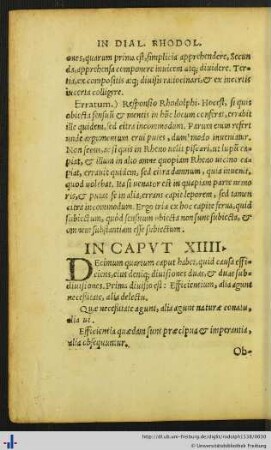 IN DIAL. RHODOL.
ones, quarum prima est, simplicia apprehendere, Secun
da, apprehensa componere inuicem atq; diuidere. Ter-
tia, ex compositis atq; diuisis ratiocinari, & ex incertis
incerta colligere.
Erratum.) Responsio Rhodolphi. Hoerst, si quis
obiecta sensuli & mentis in hoc locum conferet, errabit
ille quidem, sed citra incommodum. Parum enim refert
unde argumentum erui putes, dum modo inueniatur.
Non secus, ac si quis in Rheno uelit piscari, ut lupũ capi-
at, & illum in alio amne quopiam Rheno uicino ca-
piat, errauit quidem, sed citra damnum, quia inuenit,
quod uolebat. Rursus uenator est in quapiam parte nemo-
ris, & putat se in alia, errans capit leporem, sed tamen
citra incommodum. Ergo tria ex hoc capite serua, quid
subiectum, quod sensuum obiecta non sunt subiecta, &
quomodo substantiam esse subiectum.
IN CAPVT XIIII.
DEcimum quartum caput habet, quid causa effi-
ciens, eius deniq; diuisiones duas, & duas subdi-
uisiones. Prima diuisio est: Efficientium, alia agunt
necesitate, alia delectu.
Quæ necesitate agunt, alia agunt naturæ conatu,
alia ui.
Efficientia quædam sunt præcipua & imperantia,
alia obsequuntur.
Ob-
http://dl.ub.uni-freiburg.de/diglit/rodolph1538/0030
© Universitätsbibliothek Freiburg